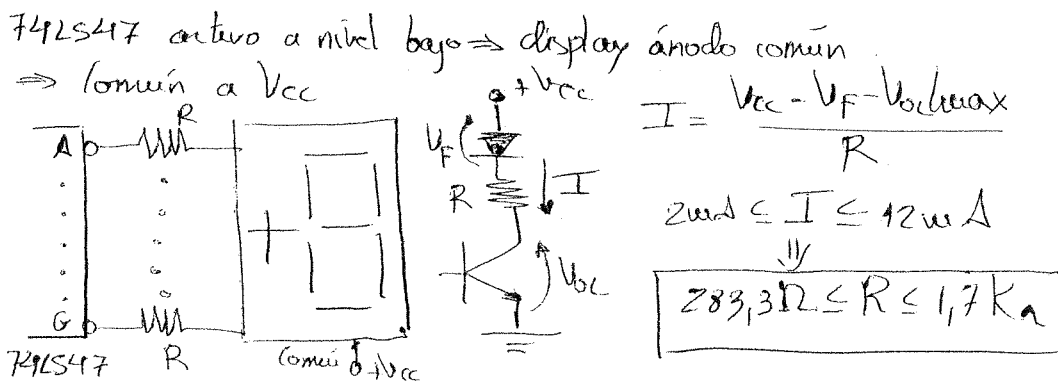 74LS47 activo a nivel bajo ⇒ display ánodo común.
⇒ Común a Vcc
R
A
G
R
74LS47
Común +Vcc
+Vcc
VF
R
I
VOL
I = (Vcc - VF - VOLmax) / R
2mA ≤ I ≤ 12mA
⇓
283,3Ω ≤ R ≤ 1,7KΩ